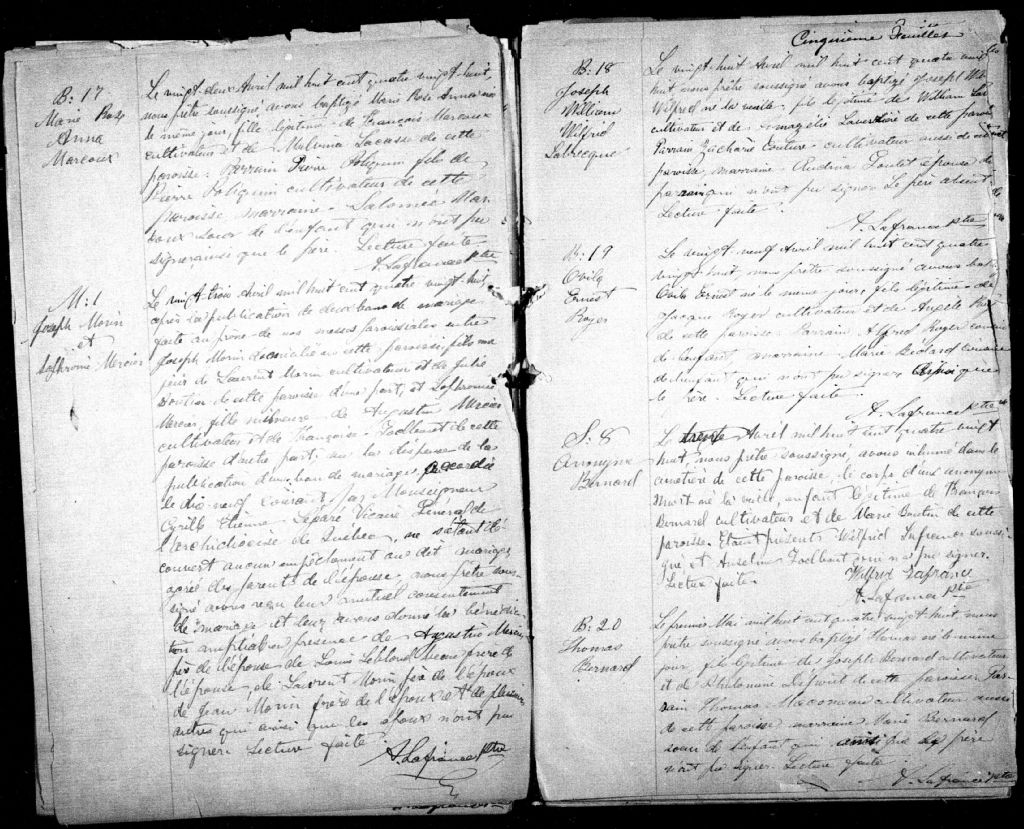 B: 17
Marie Rose
Anna
Marcoux
Le vingt-deux Avril mil huit cent quatre vingt-huit,
nous prêtre soussigné, avons baptizé Marie Rose Anna née
le même jour, fille légitime de François Marcoux
cultivateur et de Malvina Lacasse de cette
paroisse. Parrain Pierre Poliquin fils de
Pierre Poliquin cultivateur de cette
paroisse, marraine. Salomée Mar-
coux soeur de l'enfant qui n'ont pu
signer ainsi que le père. Lecture faite
A. Lafrance ptre
M: 1
Joseph Morin
et
Sophronie Mercier
Le vingt-trois Avril mil huit cent quatre vingt-huit,
après la publication de deux bans de mariage
faite au prône de nos messes paroissiales entre
Joseph Morin domicilié en cette paroisse, fils ma
jeur de Laurent Morin cultivateur et de Julie
Boutin de cette paroisse d'une part, et Sophronie
Mercier, fille mineure de Augustin Mercier
cultivateur et de Françoise Jolbant de cette
paroisse d'autre part; vu la dispense de la
publication d'un ban de mariage accordée
le dix-neuf courant par Monseigneur
Cyrille Etienne Légaré Vicaire Général de
l'archidiocèse de Québec, ne s'étant dé
couvert aucun empêchement au dit mariage,
agréé des parents de l'épouse, nous prêtre sous-
signé avons reçu leur mutuel consentement
de mariage et leur avons donné la bénédic-
tion nuptiale en présence de Augustin Mercier
père de l'épouse de Louis Leblond beau-frère de
l'épouse, de Laurent Morin père de l'époux
de Jean Morin frère de l'époux et de plusieurs
autres qui ainsi que les époux n'ont pu
signer. Lecture faite.
A. Lafrance ptre
Cinquième Feuillet
B: 18
Joseph
William
Wilfrid
Labrecque
Le vingt-huit Avril mil huit cent quatre vingt
huit nous prêtre soussigné avons baptizé Joseph
Wilfrid né la veille, fils légitime de William
cultivateur et de Laverdière de cette
Parrain Zacharie Couture cultivateur aussi de
paroisse, marraine Audina Toutet épouse du
parrain qui n'ont pu signer. Le père absent
Lecture faite.
A. Lafrance ptre
B: 19
Ovila
Ernest
Royer
Le vingt-neuf Avril mil huit cent quatre
vingt-huit nous prêtre soussigné avons
Ovila Ernest né le même jour, fils légitime de
Jacques Royer cultivateur et de
de cette paroisse. Parrain Alfred Royer cousin
de l'enfant, marraine Marie Bédard cousine
de l'enfant qui n'ont pu signer ainsi que
le père. Lecture faite.
A. Lafrance ptre
S: 8
Anonyme
Bernard
Le trente Avril mil huit cent quatre vingt
huit, nous prêtre soussigné, avons inhumé dans le
cimetière de cette paroisse, le corps d'un anonyme
mort né la veille, enfant légitime de François
Bernard cultivateur et de Marie Boutin de cette
paroisse. Etaient présents Wilfrid Lafrance soussi-
gné et Anselme Jolbant qui n'a pu signer.
Lecture faite.
Wilfrid Lafrance
A. Lafrance ptre
B: 20
Thomas
Bernard
Le premier Mai mil huit cent quatre vingt-huit nous
prêtre soussigné avons baptizé Thomas né le même
jour, fils légitime de Joseph Bernard cultivateur
et de Philomène de cette paroisse. Par-
rain Thomas cultivateur aussi
de cette paroisse marraine Marie Bernard
soeur de l'enfant qui ainsi que le père
n'ont pu signer. Lecture faite.
A. Lafrance ptre